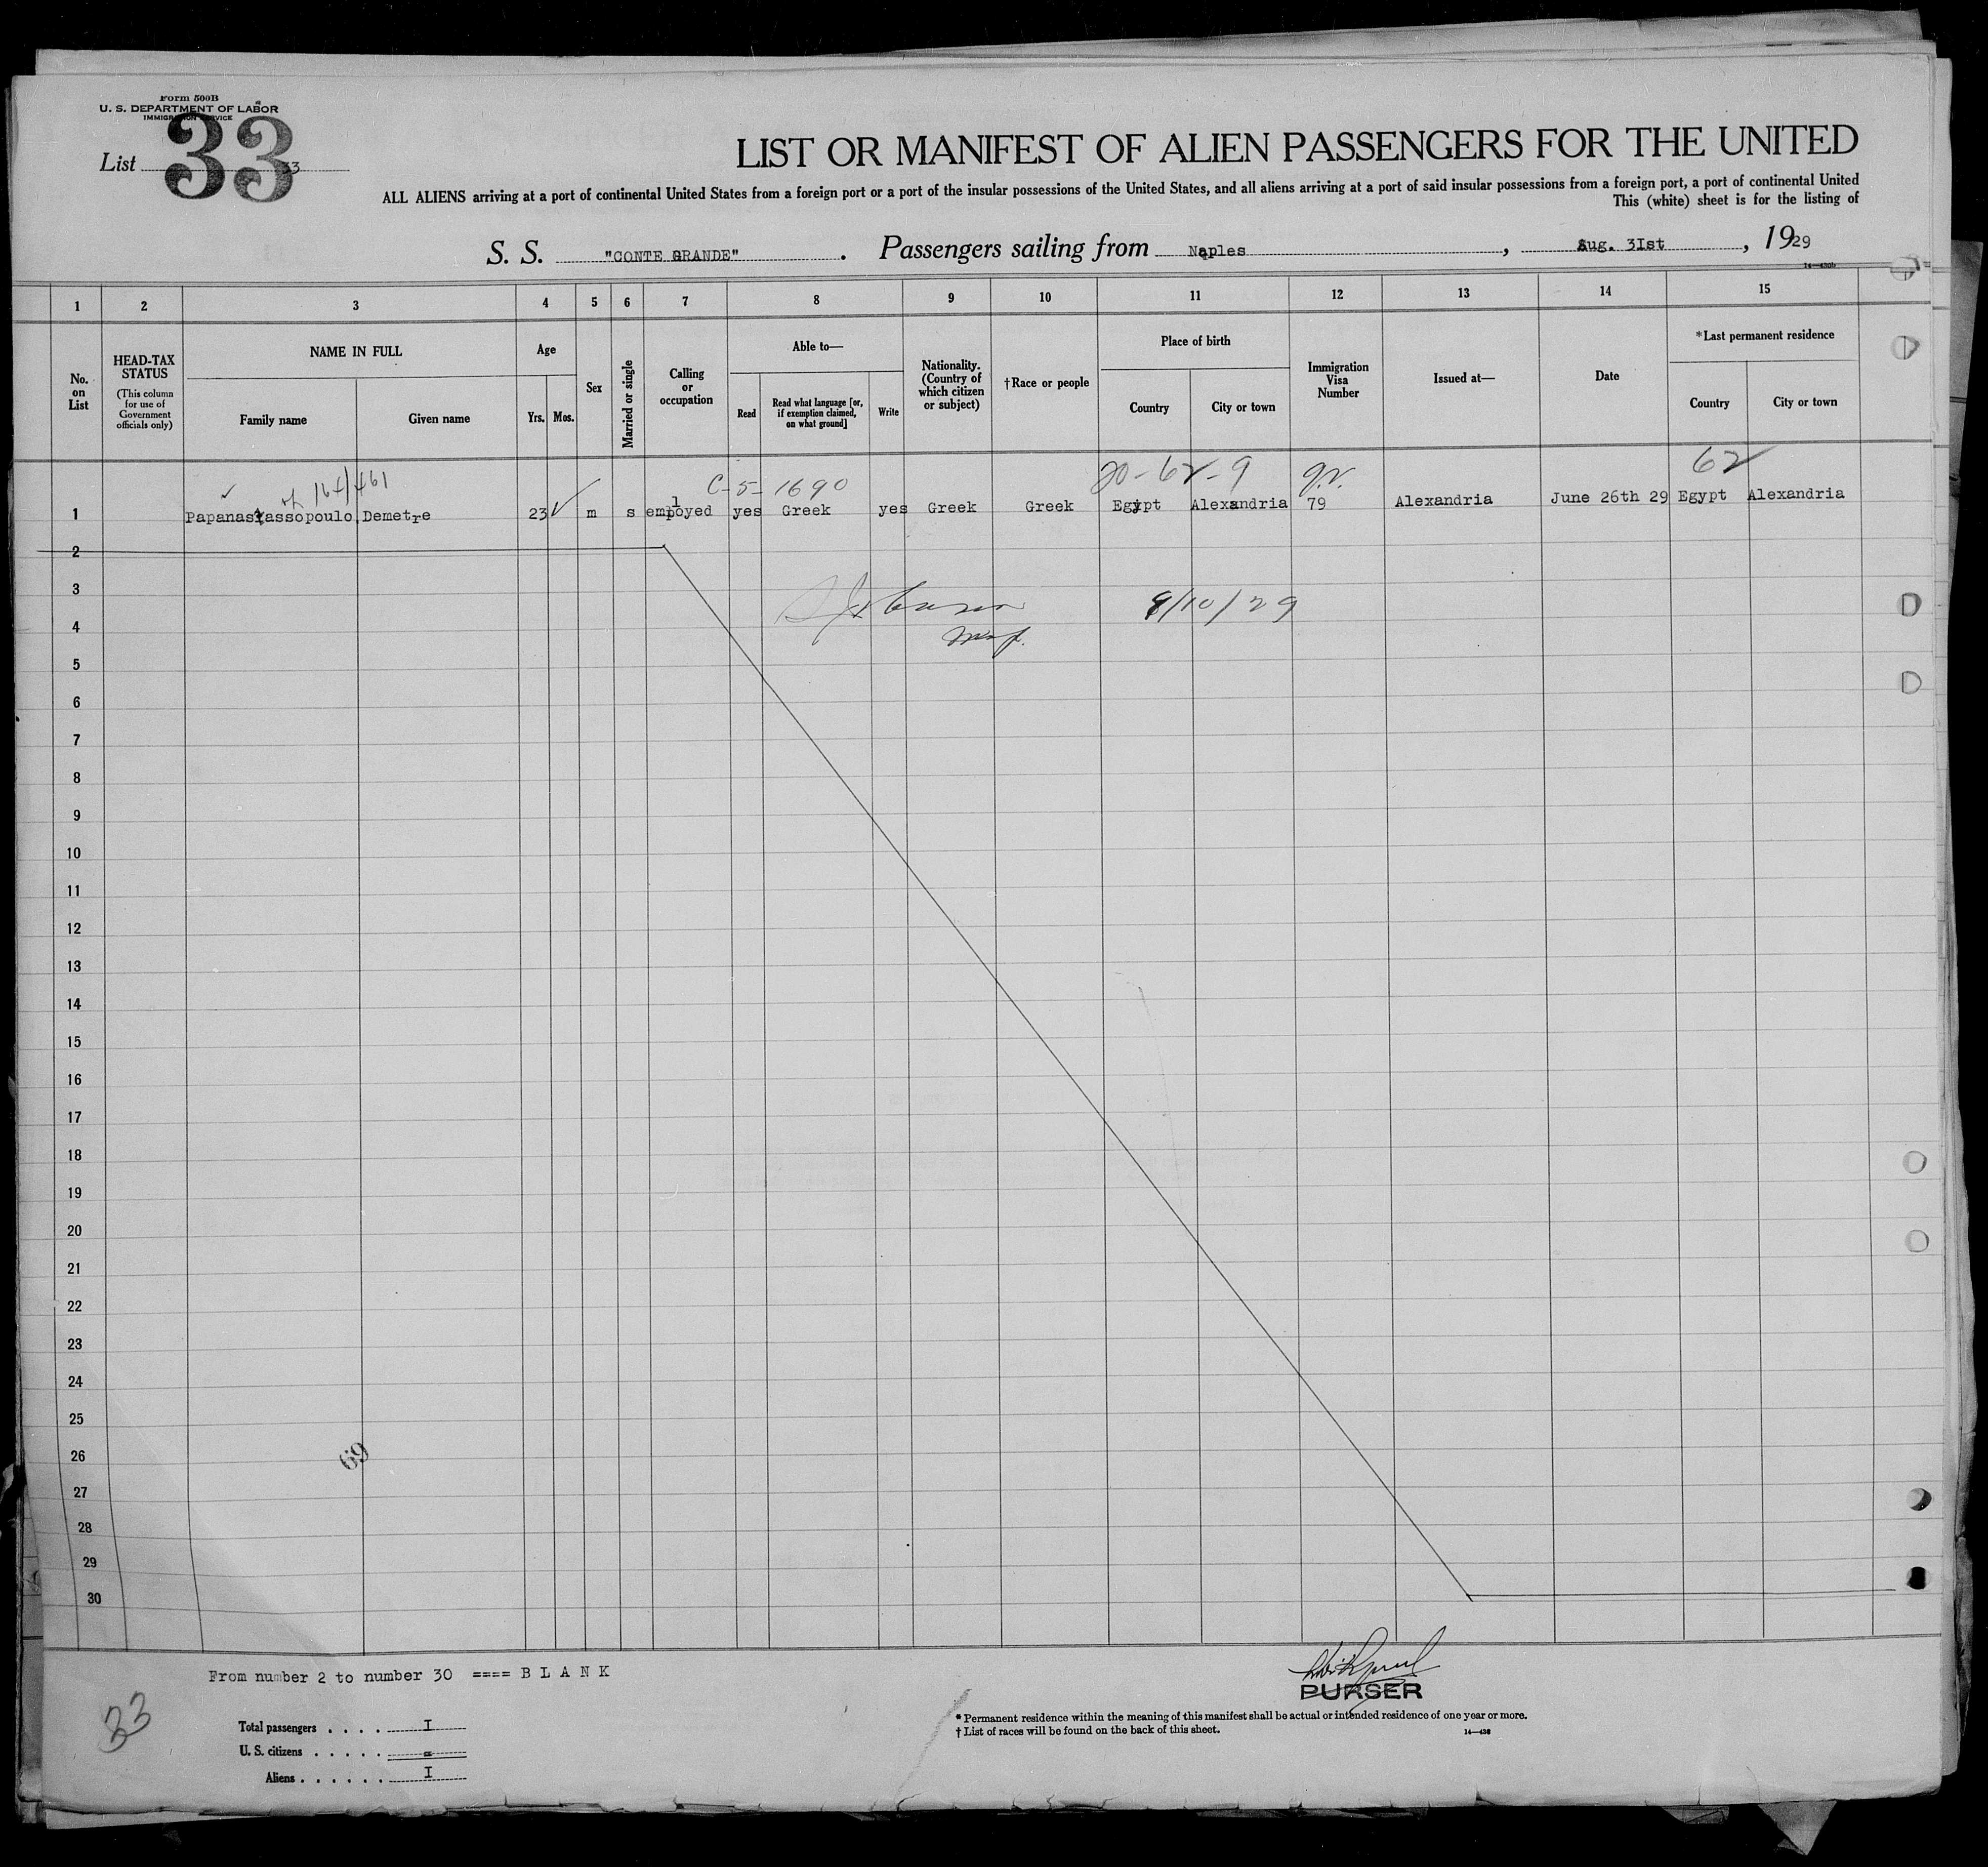 Form 500B
U. S. DEPARTMENT OF LABOR
IMMIGRATION SERVICE
33
List 33
LIST OR MANIFEST OF ALIEN PASSENGERS FOR THE UNITED
ALL ALIENS arriving at a port of continental United States from a foreign port or a port of the insular possessions of the United States, and all aliens arriving at a port of said insular possessions from a foreign port, a port of continental United
This (white) sheet is for the listing of
S. S. "CONTE GRANDE". Passengers sailing from Naples, Aug. 3Ist, 1929
1 2 3 4 5 6 7 8 9 10 11 12 13 14 15
No. on List
HEAD-TAX STATUS
(This column for use of Government officials only)
NAME IN FULL
Family name
Given name
Age
Yrs.
Mos.
Sex
Married or single
Calling or occupation
Able to—
Read
Read what language [or, if exemption claimed, on what ground]
Write
Nationality. (Country of which citizen or subject)
†Race or people
Place of birth
Country
City or town
Immigration Visa Number
Issued at—
Date
*Last permanent residence
Country
City or town
C-5-1690 20-62-9 62
1 Papanastassopoulo Demetre 23 m s employed yes Greek yes Greek Greek Egypt Alexandria 79 Alexandria June 26th 29 Egypt Alexandria
2
3
9/10/29
4
5
6
7
8
9
10
11
12
13
14
15
16
17
18
19
20
21
22
23
24
25
26
69
27
28
29
30
From number 2 to number 30 ==== B L A N K
PURSER
33
Total passengers . . . . I
U. S. citizens . . . . . =
Aliens . . . . . . I
* Permanent residence within the meaning of this manifest shall be actual or intended residence of one year or more.
† List of races will be found on the back of this sheet.
14—430